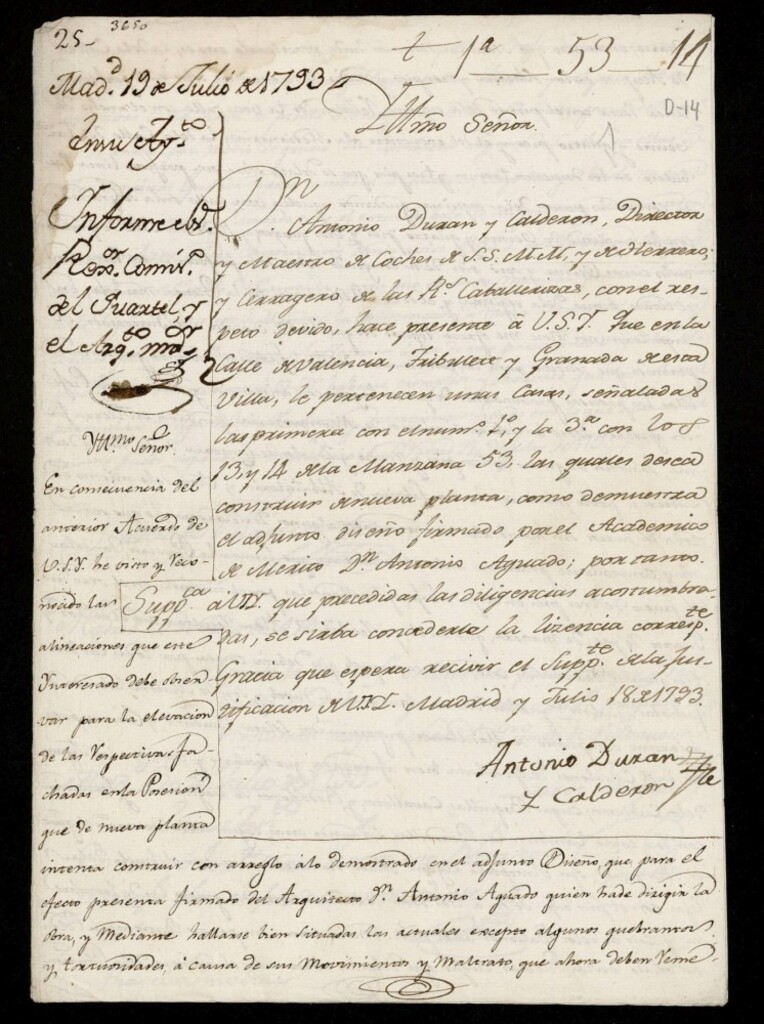 25-
3650
t 1ª 53 14
D-14
Mad.d 19 de Julio de 1793
En su Ay.to
Informe el S.r
Rex.or Comis.o
del Quartel, y
el Arq.to m.or
Yttmo Señor.
D.n Antonio Duran y Calderon, Director
y Maestro de Coches de S.S.M.M, y de Herrero;
y Cerragero de las R.s Caballerizas, con el res-
peto devido, hace presente á V.S.Y. Que en la
Calle de Valencia, Tribulete y Granada de esta
Villa, le pertenecen unas Casas, señaladas
las primera con el num.o 1.o, y la 3.a con los
13, y 14 de la Manzana 53, las quales desea
construir de nueva planta, como demuestra
el adjunto diseño firmado por el Academico
de Merito D.n Antonio Aguado; por tanto.
Supp.ca a VSY. que precedidas las diligencias acostumbra-
das, se sirba concederle la lizencia corresp.te
Gracia que espera recivir el Supp.te de la Jus-
tificacion de VSY. Madrid y Julio 18 de 1793.
Antonio Duran
y Calderon
Yttmo Señor
En consecuencia del
anterior Acuerdo de
V.S.Y. he visto y reco-
nocido las
alineaciones que este
Ynteresado debe obser-
var para la elevacion
de las respectivas fa-
chadas en la Posesion
que de nueva planta
intenta construir con arreglo á lo demostrado en el adjunto Diseño, que para el
efecto presenta firmado del Arquitecto D.n Antonio Aguado quien ha de dirigir la
obra, y Mediante hallarse bien situadas las actuales excepto algunos quebrantos
y tortuosidades, á causa de sus Movimientos y Maltrato, que ahora deben reme-